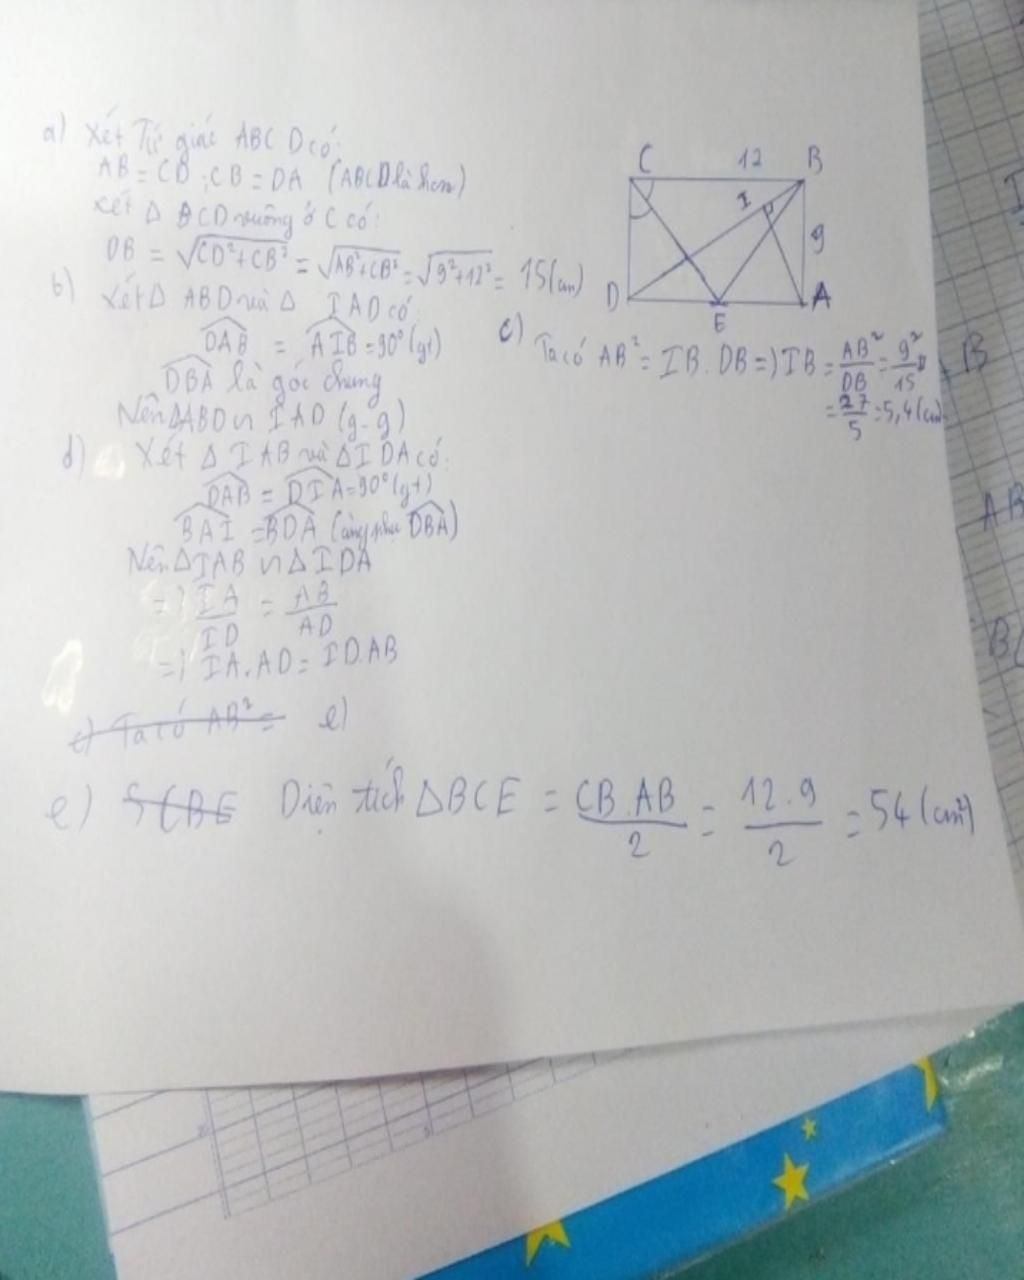 a) Xét Tứ giác ABCD có:
AB = CD ; CB = DA (ABCD là hcn)
Xét Δ BCD vuông ở C có:
DB = √CD²+CB² = √AB²+CB² = √9²+12² = 15(cm)
b) Xét Δ ABD và Δ IAD có
DAB = AIB = 90° (gt)
DBA là góc chung
Nên ΔABD ∽ IAD (g-g)
C 12 B
I
9
D E A
c) Ta có AB² = IB . DB =) IB = AB²/DB = 9²/15
= 27/5 = 5,4 (cm)
d) Xét Δ IAB và Δ IDA có:
DAB = DIA = 90° (gt)
BAI = BDA (cùng phụ DBA)
Nên Δ IAB ∽ Δ IDA
=) IA/ID = AB/AD
=) IA . AD = ID . AB
c) Ta có AB² = e)
e) SCBE Diện tích ΔBCE = CB . AB/2 = 12 . 9/2 = 54 (cm²)
B
AB
B